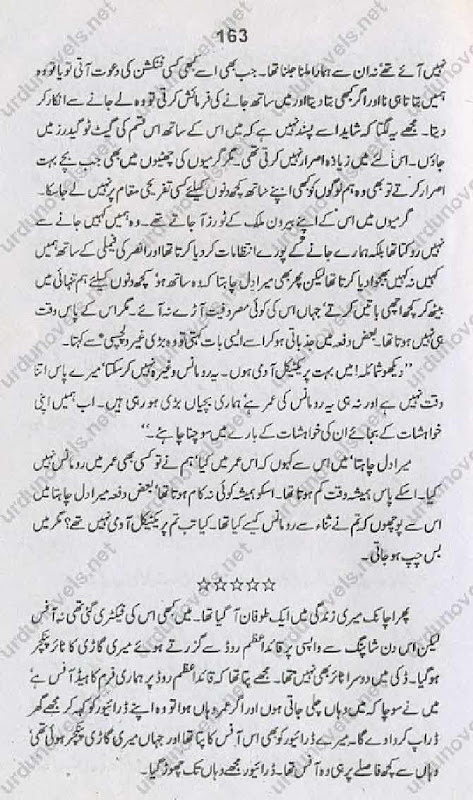 163
نہیں آئے تھے نہ ان سے ہمارا ملنا جلنا تھا۔ جب بھی اسے کبھی کسی فنکشن کی دعوت آتی تو یا تو وہ
ہمیں بتاتا ہی نا اور اگر کبھی بتا دیتا اور میں ساتھ جانے کی فرمائش کرتی تو وہ لے جانے سے انکار کر
دیتا۔ مجھے یہ لگتا کہ شاید اسے پسند نہیں ہے کہ میں اس کے ساتھ اس قسم کی گیٹ ٹو گیدرز میں
جاؤں۔ اس لئے میں زیادہ اصرار نہیں کرتی تھی۔ مگر گرمیوں کی چھٹیوں میں بھی جب بچے بہت
اصرار کرتے تو بھی وہ ہم لوگوں کو کبھی اپنے ساتھ کچھ دنوں کیلئے کسی تفریحی مقام پر نہیں لے جا سکا۔
گرمیوں میں اس کے اپنے بیرون ملک کے ٹورز آ جاتے تھے۔ وہ ہمیں کہیں جانے سے
نہیں روکتا تھا بلکہ ہمارے جانے کے پورے انتظامات کر دیا کرتا تھا اور انصر کی فیملی کے ساتھ ہمیں
کہیں نہ کہیں بھجوا دیا کرتا تھا لیکن پھر بھی میرا دل چاہتا کہ وہ ساتھ ہو کچھ دنوں کیلئے ہم تنہائی میں
بیٹھ کر کچھ اچھی باتیں کرتے جہاں اس کی کوئی مصروفیت آڑے نہ آئے۔ مگر اس کے پاس وقت
ہی نہیں ہوتا تھا۔ بعض دفعہ میں جذباتی ہو کر اسے ایسی بات کہتی تو وہ بڑی غیر دلچسپی سے کہتا۔
”دیکھو شائلہ! میں بہت پریکٹیکل آدمی ہوں۔ یہ رومانس وغیرہ نہیں کر سکتا‘ میرے پاس اتنا
وقت نہیں ہے اور نہ ہی یہ رومانس کی عمر ہے‘ ہماری بچیاں بڑی ہو رہی ہیں۔ اب ہمیں اپنی
خواہشات کے بجائے ان کی خواہشات کے بارے میں سوچنا چاہئے۔“
میرا دل چاہتا‘ میں اس سے کہوں کہ اس عمر میں کیا‘ ہم نے تو کسی بھی عمر میں رومانس نہیں
کیا۔ اسکے پاس ہمیشہ وقت کم ہوتا تھا۔ اسکو ہمیشہ کوئی نہ کام ہوتا تھا‘ بعض دفعہ میرا دل چاہتا میں
اس سے پوچھوں کہ تم نے ثناء سے رومانس کیسے کیا تھا۔ کیا تب تم پریکٹیکل آدمی نہیں تھے؟ مگر میں
بس چپ ہو جاتی۔
☆☆☆☆☆
پھر اچانک میری زندگی میں ایک طوفان آ گیا تھا۔ میں کبھی اس کی فیکٹری گئی تھی نہ آفس
لیکن اس دن شاپنگ سے واپسی پر قائداعظم روڈ سے گزرتے ہوئے میری گاڑی کا ٹائر پنکچر
ہو گیا۔ ڈکی میں دوسرا ٹائر بھی نہیں تھا۔ مجھے پتا تھا کہ قائداعظم روڈ پر ہماری فرم کا ہیڈ آفس ہے
میں نے سوچا کہ میں وہاں چلی جاتی ہوں اور اگر عمر وہاں ہوا تو وہ اپنے ڈرائیور کو کہہ کر مجھے گھر
ڈراپ کروا دے گا۔ میرے ڈرائیور کو بھی اس آفس کا پتا تھا اور جہاں میری گاڑی پنکچر ہوئی تھی
وہاں سے کچھ فاصلے پر ہی وہ آفس تھا۔ ڈرائیور مجھے وہاں تک چھوڑ گیا۔
urdunovels.net